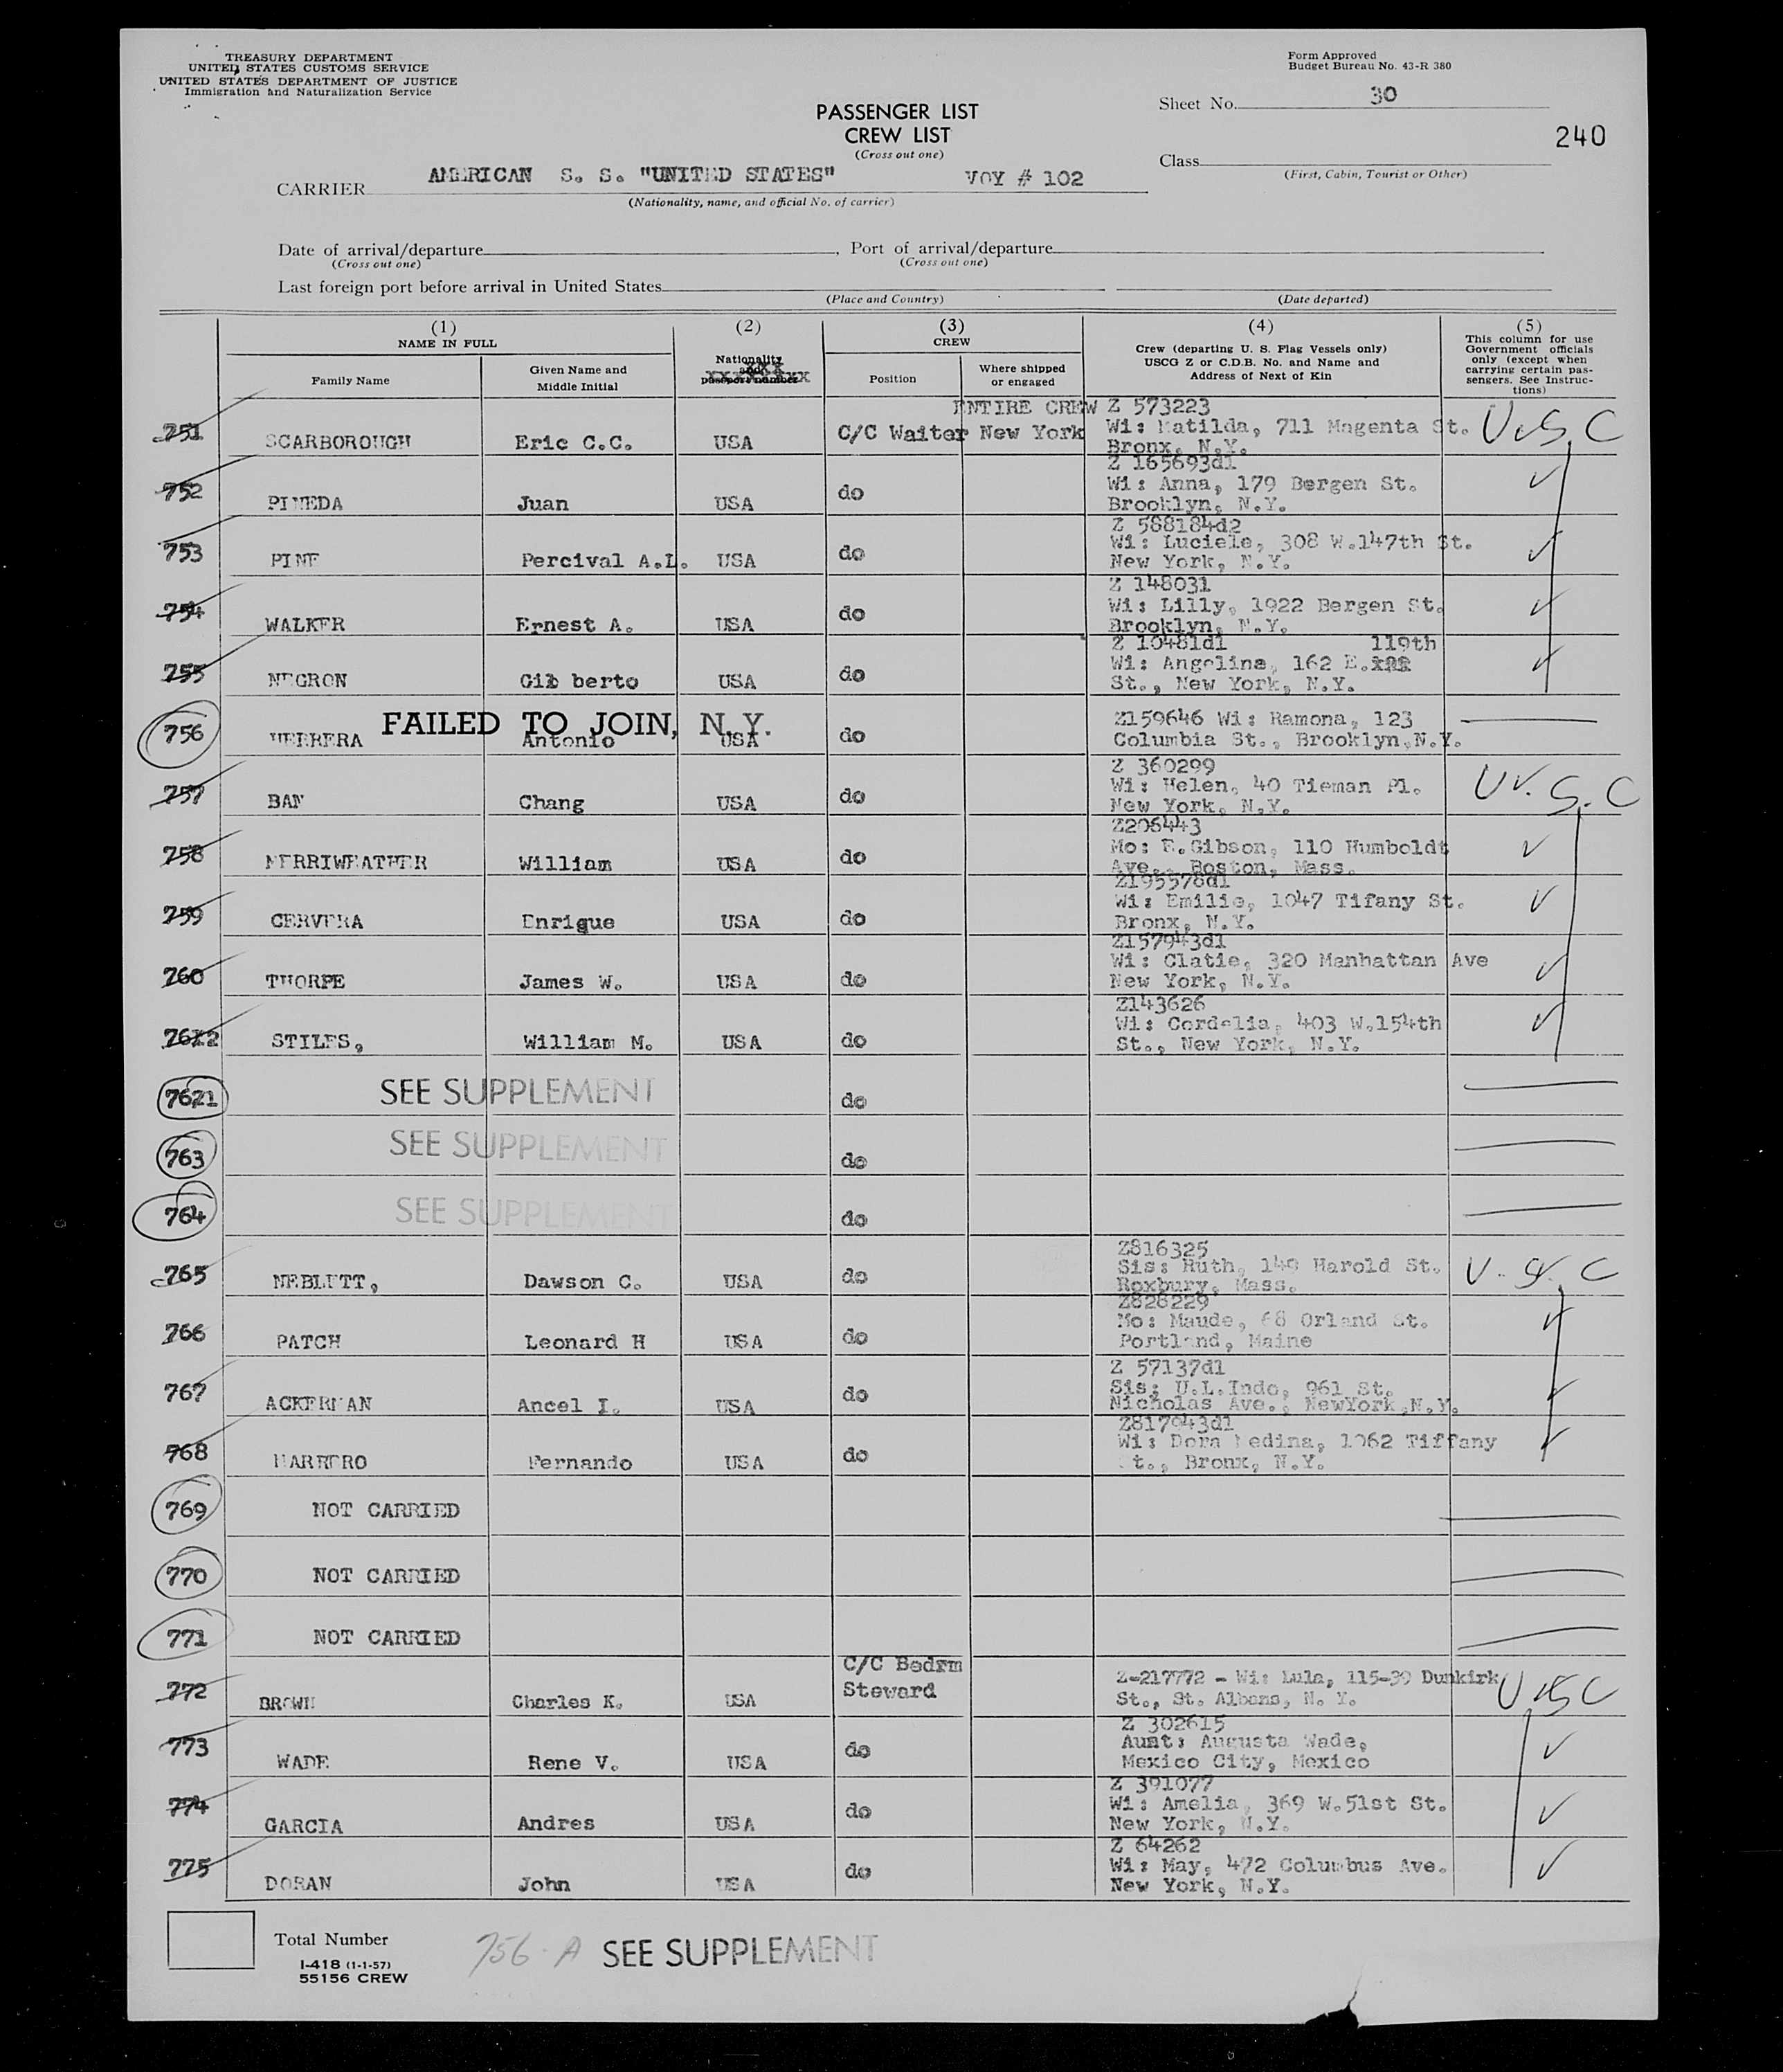 TREASURY DEPARTMENT
UNITED STATES CUSTOMS SERVICE
UNITED STATES DEPARTMENT OF JUSTICE
Immigration and Naturalization Service
Form Approved
Budget Bureau No. 43-R 380
Sheet No. 30
240
PASSENGER LIST
CREW LIST
(Cross out one)
Class
(First, Cabin, Tourist or Other)
CARRIER AMERICAN S. S. "UNITED STATES" VOY # 102
(Nationality, name, and official No. of carrier)
Date of arrival/departure , Port of arrival/departure
(Cross out one) (Cross out one)
Last foreign port before arrival in United States
(Place and Country) (Date departed)
(1) (2) (3) (4) (5)
NAME IN FULL
Family Name
Given Name and
Middle Initial
Nationality
and
passport number
CREW
Position
Where shipped
or engaged
Crew (departing U. S. Flag Vessels only)
USCG Z or C.D.B. No. and Name and
Address of Next of Kin
This column for use
Government officials
only (except when
carrying certain pas-
sengers. See Instruc-
tions)
ENTIRE CREW Z 573223
751 SCARBOROUGH Eric C.C. USA C/C Waiter New York Wi: Matilda, 711 Magenta St. U.S.C
Bronx, N.Y.
Z 165693d1
752 PINEDA Juan USA do Wi: Anna, 179 Bergen St.
Brooklyn, N.Y.
Z 588184d2
753 PINE Percival A.L. USA do Wi: Luciele, 308 W.147th St.
New York, N.Y.
Z 148031
754 WALKER Ernest A. USA do Wi: Lilly, 1922 Bergen St.
Brooklyn, N.Y.
Z 10481d1 119th
755 NEGRON Gilberto USA do Wi: Angelina, 162 E.
St., New York, N.Y.
FAILED TO JOIN, N.Y.
756 HERRERA Antonio USA do Z159646 Wi: Ramona, 123
Columbia St., Brooklyn,N.Y.
Z 360299
757 BAN Chang USA do Wi: Helen, 40 Tieman Pl. U.S.C
New York, N.Y.
Z206443
758 MERRIWEATHER William USA do Mo: E.Gibson, 110 Humboldt
Ave., Boston, Mass.
Z195578d1
759 CERVERA Enrique USA do Wi: Emilie, 1047 Tifany St.
Bronx, N.Y.
Z157943d1
760 THORPE James W. USA do Wi: Clatie, 320 Manhattan Ave
New York, N.Y.
Z143626
762 STILES, William M. USA do Wi: Cordelia, 403 W.154th
St., New York, N.Y.
761 SEE SUPPLEMENT do
763 SEE SUPPLEMENT do
764 SEE SUPPLEMENT do
Z816325
765 NEBLETT, Dawson C. USA do Sis: Ruth, 149 Harold St. U.S.C
Roxbury, Mass.
Z828229
766 PATCH Leonard H USA do Mo: Maude, 68 Orland St.
Portland, Maine
Z 57137d1
767 ACKERMAN Ancel I. USA do Sis: U.L.Indo, 961 St.
Nicholas Ave., NewYork,N.Y.
Z817943d1
768 MARRERO Fernando USA do Wi: Dora Medina, 1062 Tiffany
St., Bronx, N.Y.
769 NOT CARRIED
770 NOT CARRIED
771 NOT CARRIED
772 BROWN Charles K. USA C/C Bedrm Z-217772 - Wi: Lula, 115-39 Dunkirk USC
Steward St., St. Albans, N. Y.
Z 302615
773 WADE Rene V. USA do Aunt: Augusta Wade,
Mexico City, Mexico
Z 391077
774 GARCIA Andres USA do Wi: Amelia, 369 W.51st St.
New York, N.Y.
Z 64262
775 DORAN John USA do Wi: May, 472 Columbus Ave.
New York, N.Y.
Total Number
I-418 (1-1-57)
55156 CREW
756-A SEE SUPPLEMENT